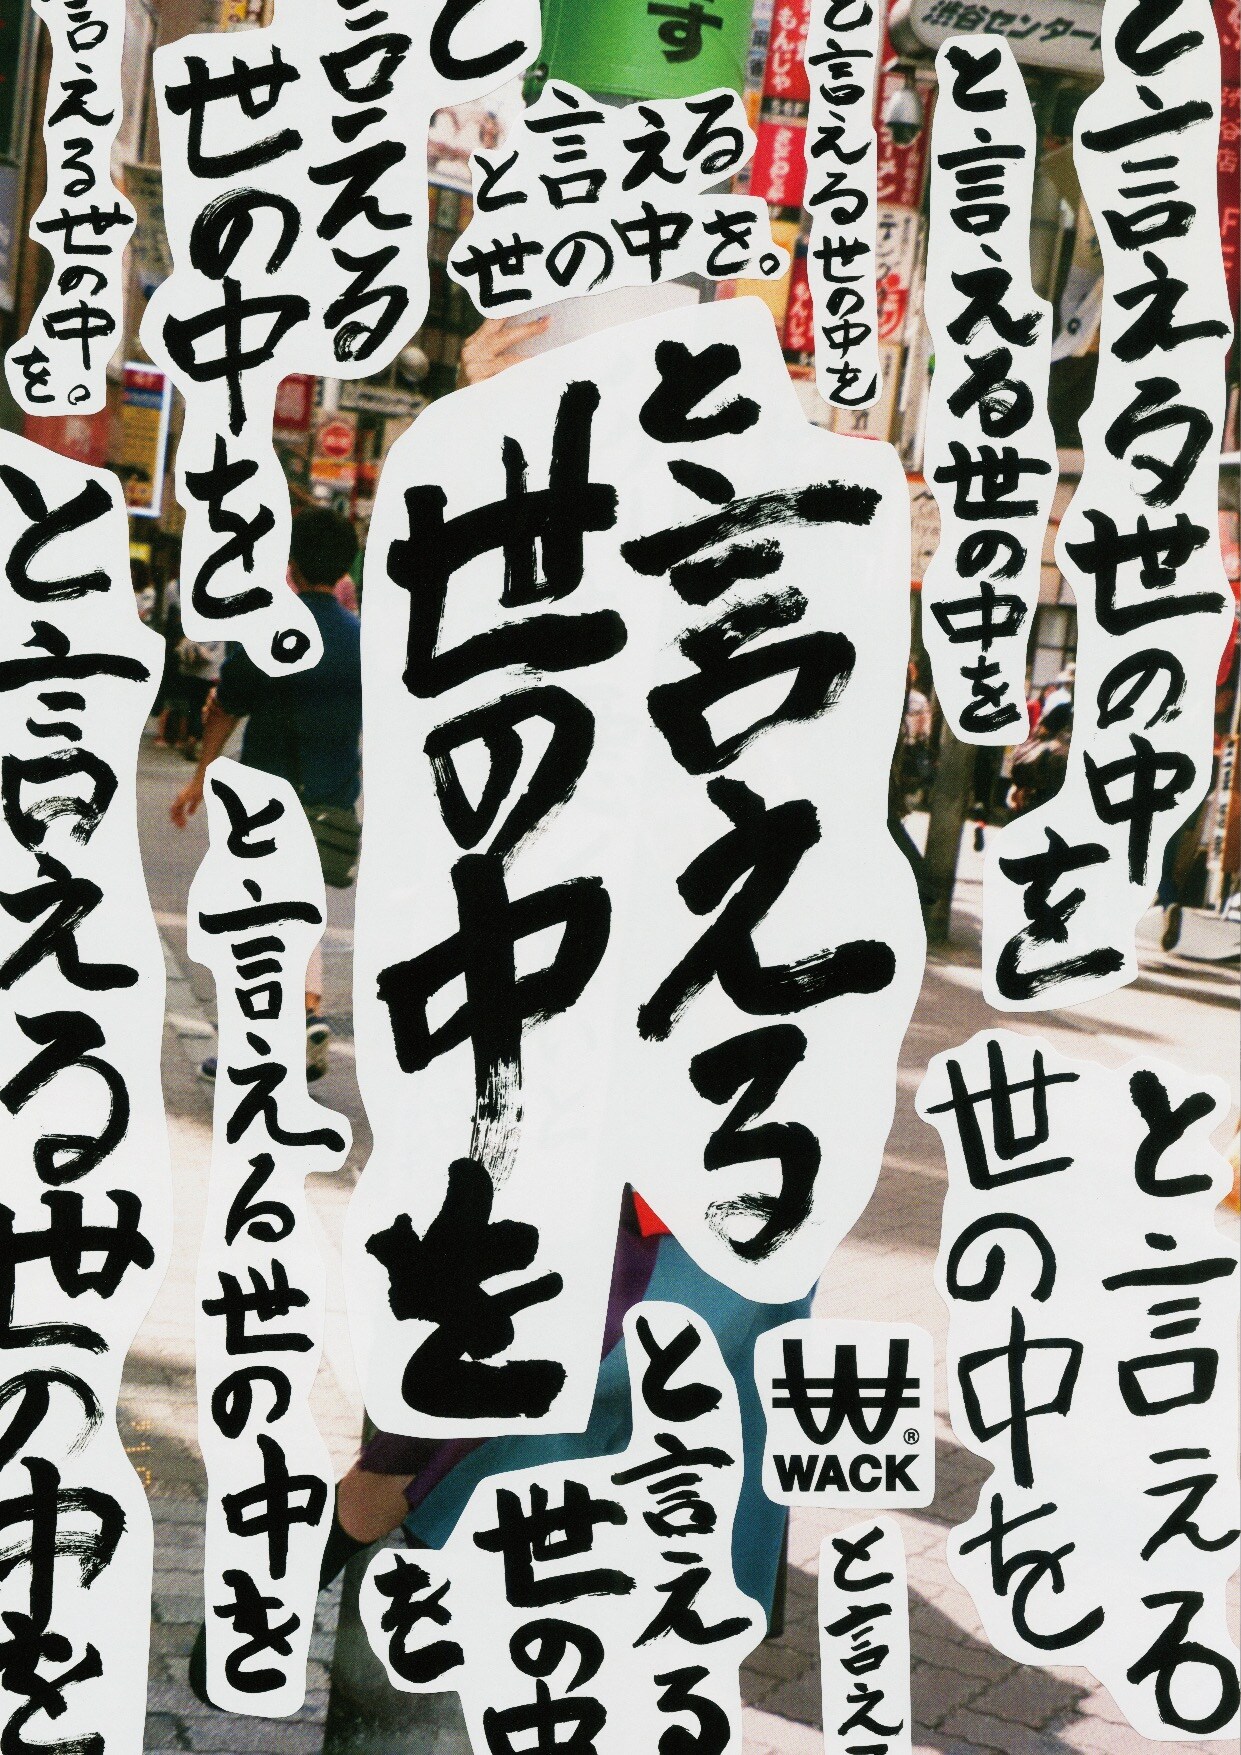 と言える
世の中を
と言える世の中を
と言える世の中を
と言える世の中を
と言える
世の中を。
言える
世の中を。
言える世の中。
を。
と言える世の中を
と言える世の中を
と言える
世の中を
と言える
世の中
を
と言え
WACK
®
渋谷センター
す
もんじゃ